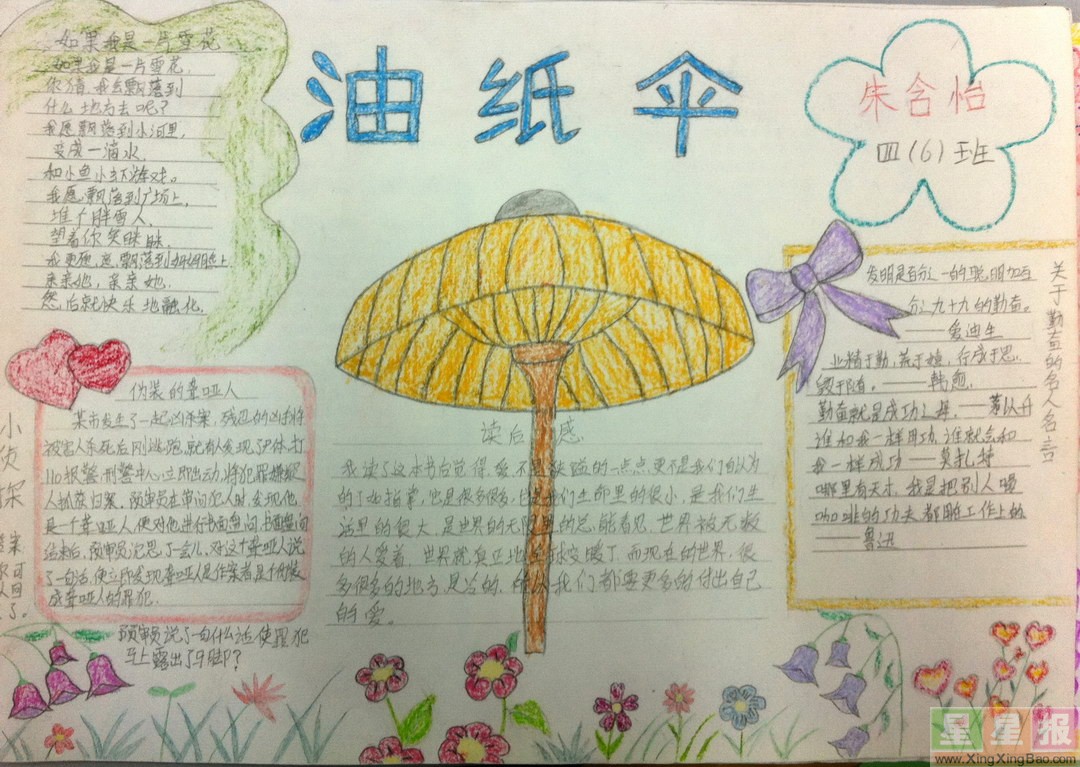 油纸伞
朱含怡
四(6)班
如果我是一片雪花
如果我是一片雪花,
你猜,我会飘落到
什么地方去呢?
我愿飘落到小河里,
变成一滴水,
和小鱼小虾游戏。
我愿飘落到广场上,
堆个胖雪人,
望着你笑眯眯。
我更愿飘落到妈妈脸上
亲亲她,亲亲她.
然后就快乐地融化.
小侦探
伪装的聋哑人
某市发生了一起凶杀案,残忍的凶手将
被害人杀死后刚逃跑,就有人发现了尸体,打
110报警,刑警中心立即出动,将犯罪嫌疑
人抓获归案。预审员在审问犯人时,发现他
是一个聋哑人,便对他进行书面审问,书面审问
结束后,预审员沉思了一会儿,对这个聋哑人说
了一句话,便立即发现聋哑人是作案者是个伪装
成聋哑人的罪犯.
预审员说了一句什么话使罪犯
马上露出了马脚?
读后感
我读了这本书后觉得,爱不是
的一点点更不是我们自认为
的了如指掌,
我们生命里的很小,是我们生
活里的很大,是世界的无限
能看见,世界被无数
的人爱着,世界就
变暖了,而现在的世界,很
多很多的地方是冷的,
我们都要更多的付出自己
的爱。
关于勤奋的名人名言
发明是百分之一的聪明加百
分之九十九的勤奋。
——爱迪生
业精于勤,荒于嬉,行成于思,
毁于随。——韩愈
勤奋就是成功之母。——茅以升
谁和我一样用功,谁就会和
我一样成功——莫扎特
哪里有天才,我是把别人喝
咖啡的功夫,都用工作上的
——鲁迅
星星报
www.XingXingBao.com